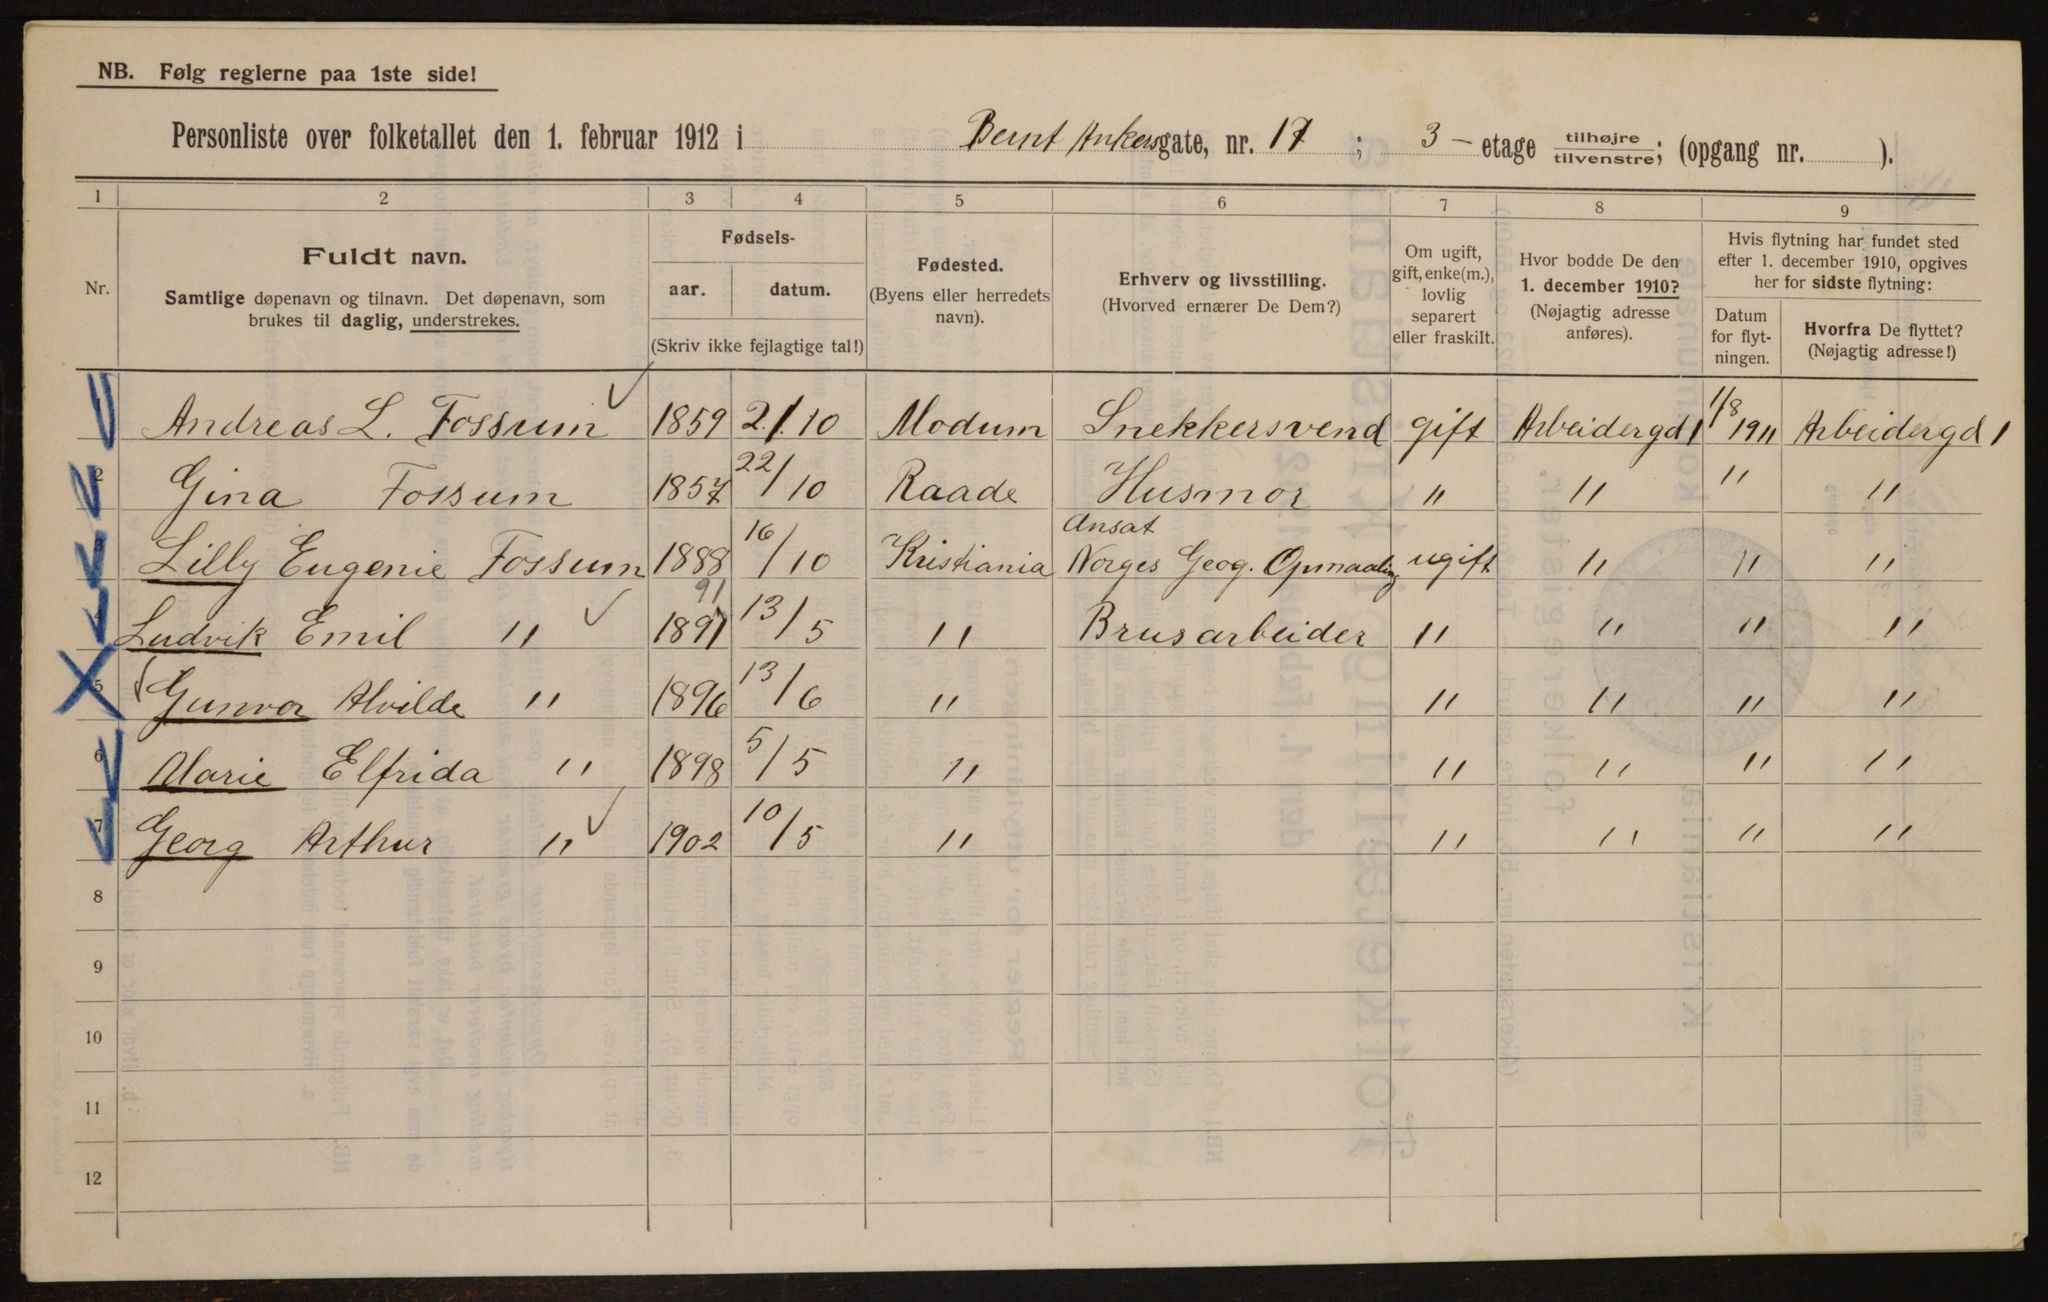 NB. Følg reglerne paa 1ste side!
Personliste over folketallet den 1. februar 1912 i Bernt Ankersgate, nr. 17; 3 - etage tilhøjre/tilvenstre; (opgang nr. ).
1 2 3 4 5 6 7 8 9
Nr.
Fuldt navn.
Samtlige døpenavn og tilnavn. Det døpenavn, som
brukes til daglig, understrekes.
Fødsels-
aar. datum.
(Skriv ikke fejlagtige tal!)
Fødested.
(Byens eller herredets
navn).
Erhverv og livsstilling.
(Hvorved ernærer De Dem?)
Om ugift,
gift, enke(m.),
lovlig
separert
eller fraskilt.
Hvor bodde De den
1. december 1910?
(Nøjagtig adresse
anføres).
Hvis flytning har fundet sted
efter 1. december 1910, opgives
her for sidste flytning:
Datum
for flyt-
ningen.
Hvorfra De flyttet?
(Nøjagtig adresse!)
1 Andreas L. Fossum 1859 2/10 Modum Snekkersvend gift Arbeidergd 1 1/8 1911 Arbeidergd 1
2 Gina Fossum 1857 22/10 Raade Husmor " " " "
3 Lilly Eugenie Fossum 1888 16/10 Kristiania Ansat Norges Geog. Opmaaling ugift " " "
91
4 Ludvik Emil " 1891 13/5 " Brusarbeider " " " "
5 Gunvor Alvilde " 1896 13/6 " " " " "
6 Marie Elfrida " 1898 5/5 " " " " "
7 Georg Arthur " 1902 10/5 " " " " "
8
9
10
11
12